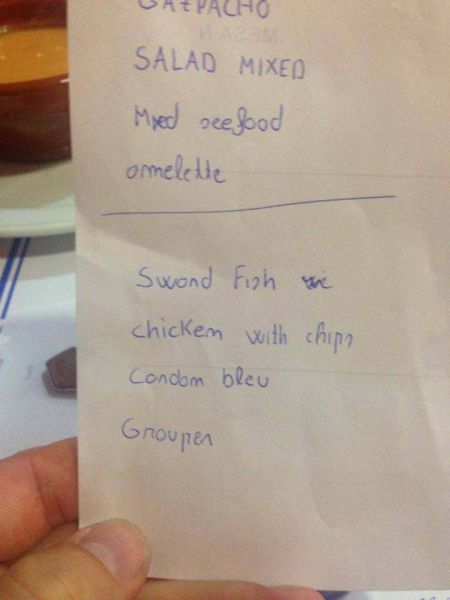 GAZPACHO
SALAD MIXED
Mixed seefood
ommelette
Sword Fish
chicken with chips
Condom bleu
Grouper